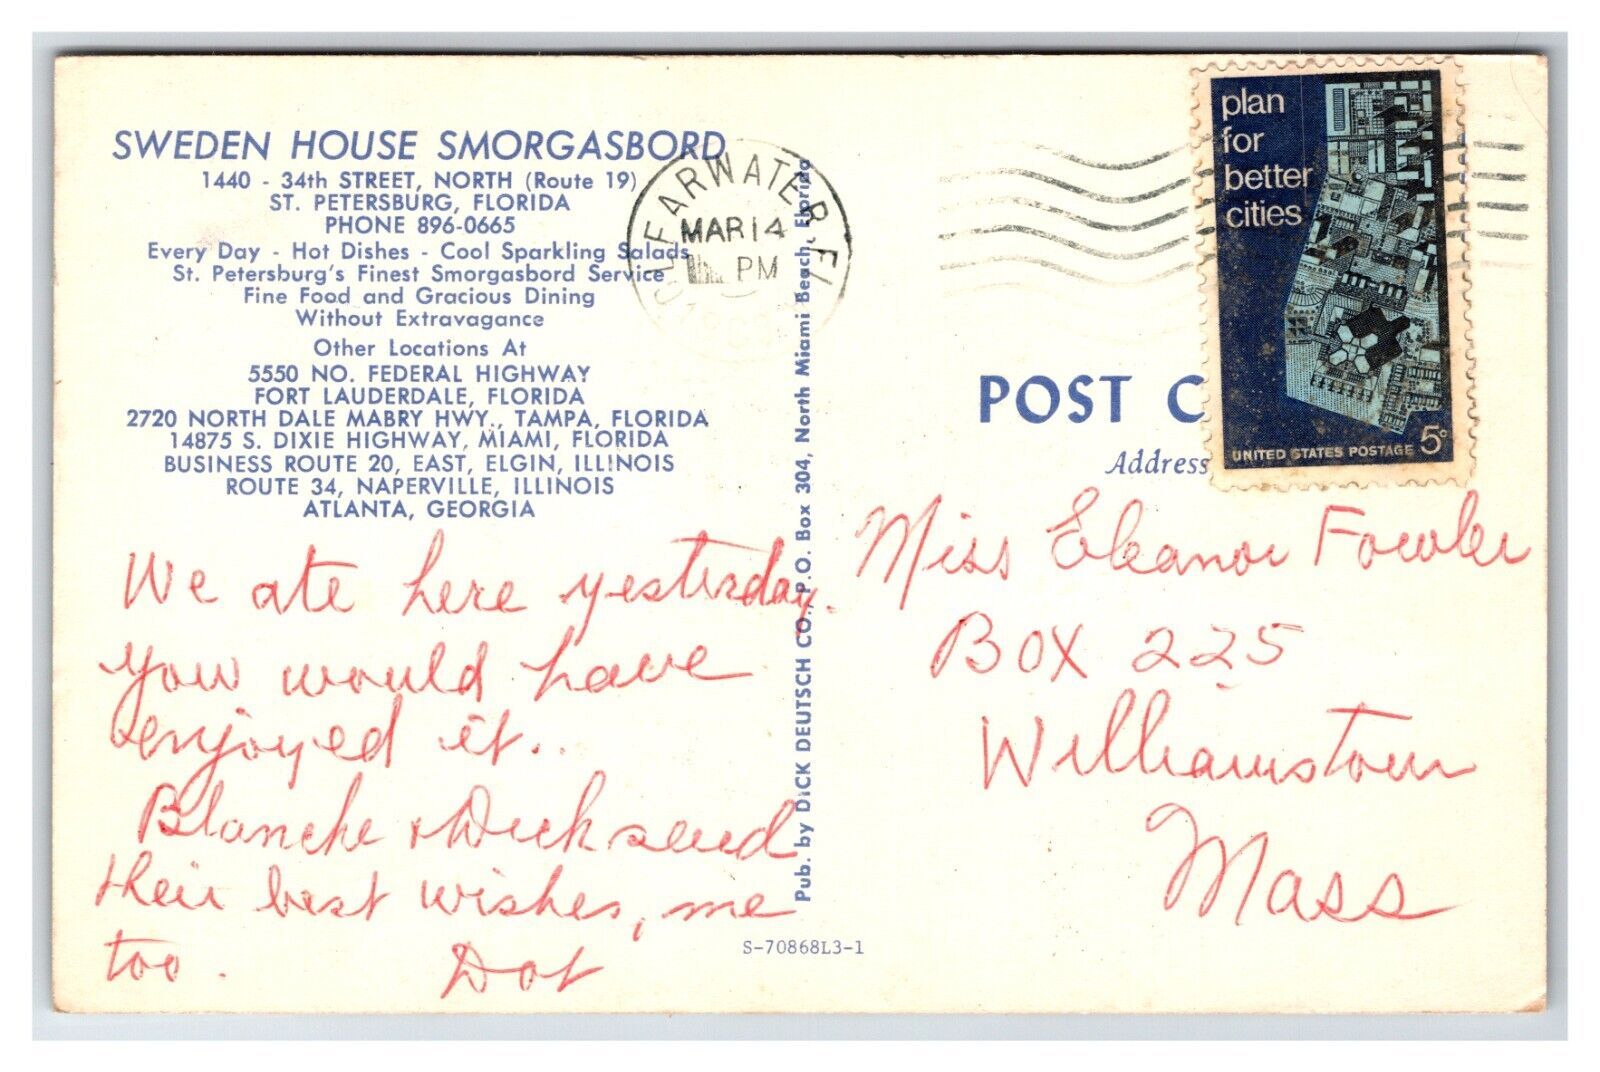 SWEDEN HOUSE SMORGASBORD
1440 - 34th STREET, NORTH (Route 19)
ST. PETERSBURG, FLORIDA
PHONE 896-0665
Every Day - Hot Dishes - Cool Sparkling Salads
St. Petersburg's Finest Smorgasbord Service
Fine Food and Gracious Dining
Without Extravagance
Other Locations At
5550 NO. FEDERAL HIGHWAY
FORT LAUDERDALE, FLORIDA
2720 NORTH DALE MABRY HWY., TAMPA, FLORIDA
14875 S. DIXIE HIGHWAY, MIAMI, FLORIDA
BUSINESS ROUTE 20, EAST, ELGIN, ILLINOIS
ROUTE 34, NAPERVILLE, ILLINOIS
ATLANTA, GEORGIA
We ate here yesterday.
you would have
enjoyed it..
Blanche & Dick send
their best wishes, me
too. Dot
Pub. by DICK DEUTSCH CO., P.O. Box 304, North Miami Beach, Florida
S-70868L3-1
CLEARWATER FL
MAR 14
PM
plan
for
better
cities
UNITED STATES POSTAGE 5¢
POST C
Address
Miss Eleanor Fowler
BOX 225
Williamstown
Mass